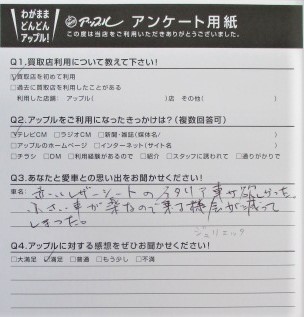 わがまま
どんどん
アップル!
アップル アンケート用紙
この度は当店をご利用いただきありがとうございました。
Q1.買取店利用について教えて下さい!
☑買取店を初めて利用
□過去に買取店を利用したことがある
利用した店舗: アップル( )店 その他( )
Q2.アップルをご利用になったきっかけは?(複数回答可)
☑テレビCM □ラジオCM □新聞・雑誌(媒体名/ )
□アップルのホームページ □インターネット(サイト名 )
□チラシ □DM □利用経験があるので □紹介 □スタッフに誘われて □通りがかりで
Q3.あなたと愛車との思い出をお聞かせください!
車名:
赤いレザーシートのイタリア車が欲しかった。
小さい車が楽なので乗る機会が減って
しまった。
ジュリエッタ
Q4.アップルに対する感想をぜひお聞かせください!
□大満足 ☑満足 □普通 □もう少し □不満